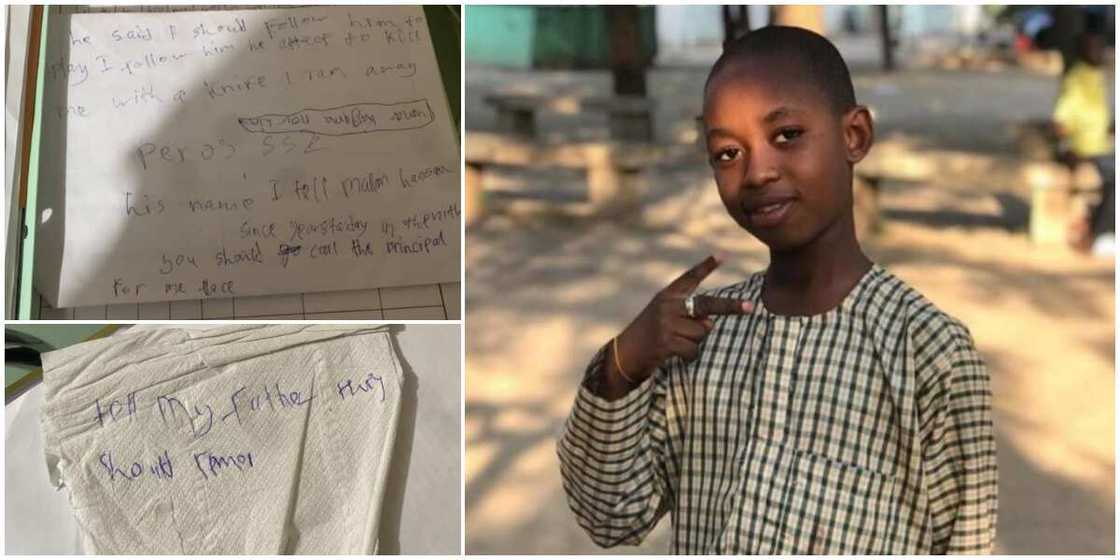 he said I should follow him to
play I follow him he attect to kill
me with a knife I ran away
Peros SS2
his name I tell malam hassan
since yearstaday in the
you should call the principal
for me
tell My Father they
should